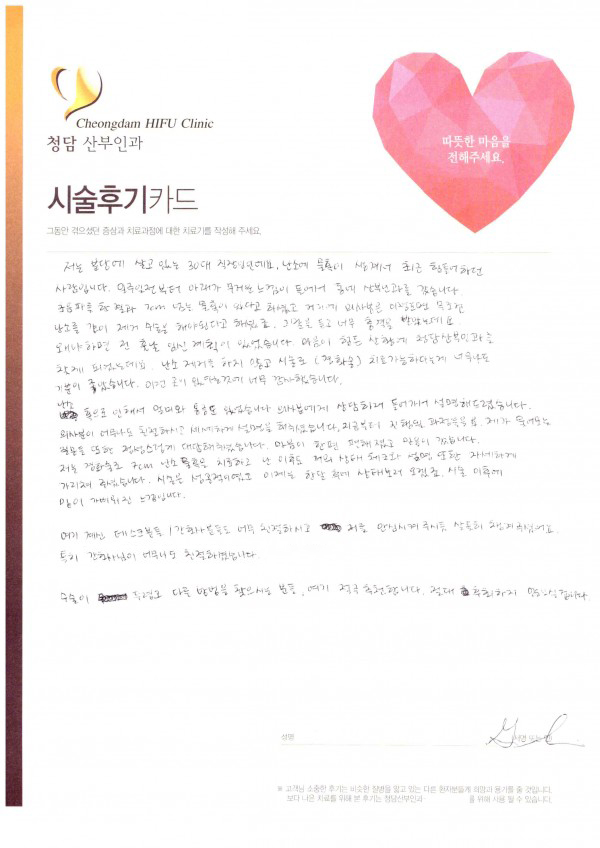 Cheongdam HIFU Clinic
청담 산부인과
따뜻한 마음을
전해주세요.
시술후기카드
그동안 겪으셨던 증상과 치료과정에 대한 치료기를 작성해 주세요.
저는 분당에 살고 있는 30대 직장인인데요, 난소에 물혹이 생겨서 최근 힘들어 하던
사람입니다. 전부터 아래가 무거운 느낌이 들어서 동네 산부인과를 갔습니다
초음파를 한 결과 7cm 넘는 물혹이 있다고 하셨고 거기계 의사분은
난소를 같이 제거 수술을 해야된다고 하셨죠. 그말을 듣고 너무 충격을 받았는데요
왜냐하면 전 훗날 임신 계획이 있었습니다 마음이 힘든 상황에 청담산부인과를
알게 되었는데요. 난소 제거를 하지 않고 시술로 (경화술) 치료가능하다는게 너무나도
기분이 좋았습니다. 이런 곳이 있다는것에 너무 감사했습니다.
난소
혹으로 인해서 염려와 통증도 있었습니다 의사분에게 상담하러 들어가서 설명해드렸습니다.
의사분이 너무나도 친절하시고 세세하게 설명을 해주셨습니다. 지금부터 진행될 과정들을요. 제가 물어보는
질문들 또한 정성스럽게 대답해주셨습니다. 마음이 한편 편해짐으로 믿음이 갔습니다.
저는 경화술로 7cm 난소 물혹을 치료하고 난 이후도 저의 상태 체크와 설명 또한 자세하게
가르쳐 주셨습니다. 시술은 성공적이였고 이제는 한달 뒤에 상태보러 오겠죠. 시술 이후에
많이 가벼워진 느낌입니다.
여기 계신 데스크분들 / 간호사분들도 너무 친절하시고 저를 안심시켜주시는 상독히 챙겨주셨어요.
특히 간호사님이 너무나도 친절하셨습니다.
수술이 두렵고 다른 방법을 찾으시는 분들, 여기 적극 추천합니다. 절대 후회하지 않으실겁니다.
성명
※ 고객님 소중한 후기는 비슷한 질병을 앓고 있는 다른 환자분들께 희망과 용기를 줄 것입니다.
보다 나은 치료를 위해 본 후기는 청담산부인과 를 위해 사용 될 수 있습니다.